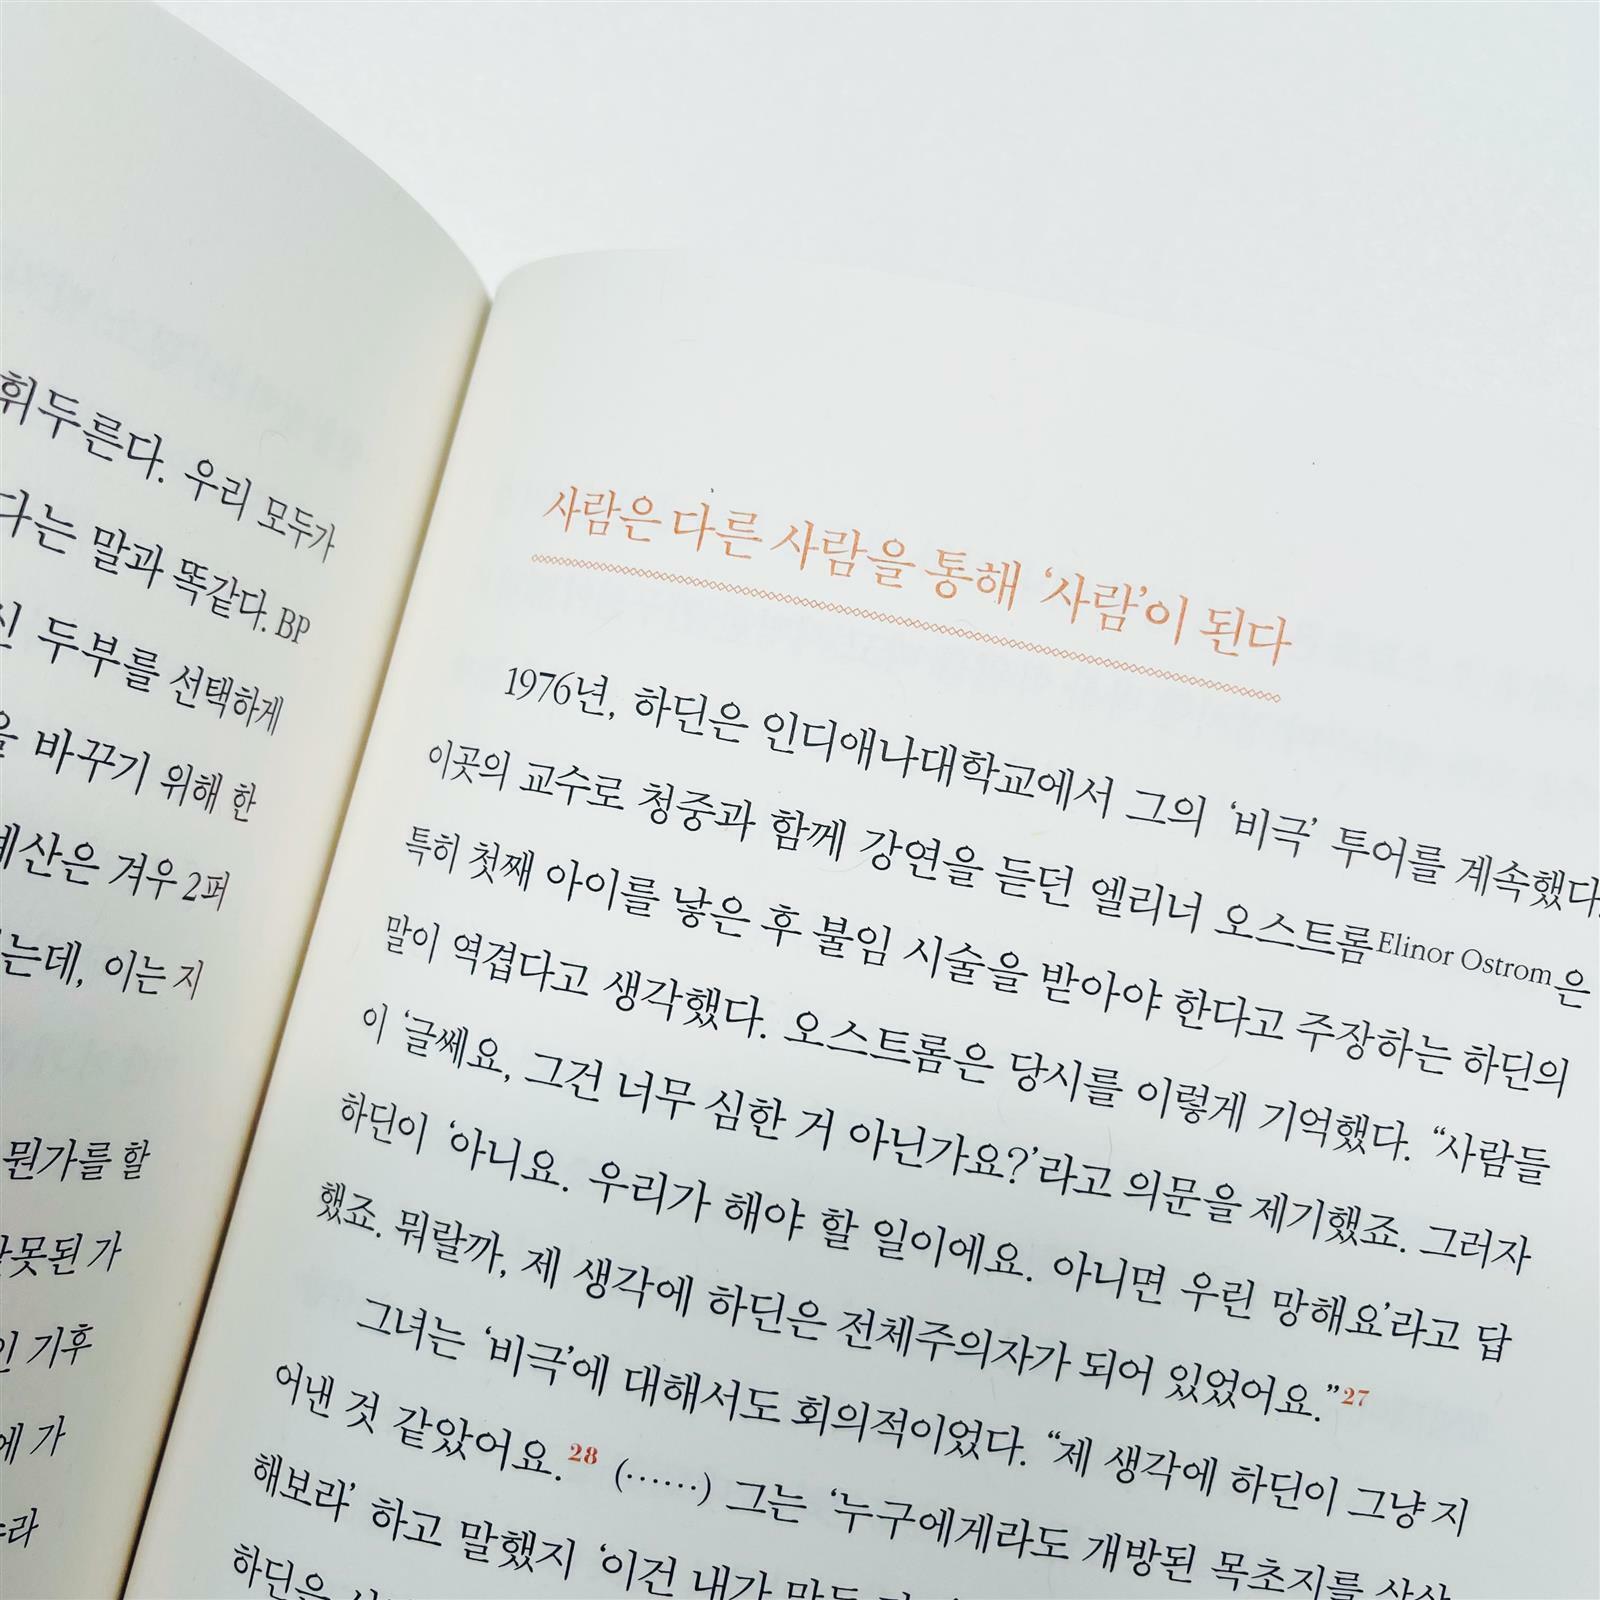 휘두른다. 우리 모두가
다는 말과 똑같다. BP
신 두부를 선택하게
을 바꾸기 위해 한
예산은 겨우 2퍼
는데, 이는 지
뭔가를 할
잘못된 가
인 기후
에 가
라
사람은 다른 사람을 통해 ‘사람’이 된다
1976년, 하딘은 인디애나대학교에서 그의 ‘비극’ 투어를 계속했다.
이곳의 교수로 청중과 함께 강연을 듣던 엘리너 오스트롬Elinor Ostrom은
특히 첫째 아이를 낳은 후 불임 시술을 받아야 한다고 주장하는 하딘의
말이 역겹다고 생각했다. 오스트롬은 당시를 이렇게 기억했다. “사람들
이 ‘글쎄요, 그건 너무 심한 거 아닌가요?’라고 의문을 제기했죠. 그러자
하딘이 ‘아니요. 우리가 해야 할 일이에요. 아니면 우린 망해요’라고 답
했죠. 뭐랄까, 제 생각에 하딘은 전체주의자가 되어 있었어요.”27
그녀는 ‘비극’에 대해서도 회의적이었다. “제 생각에 하딘이 그냥 지
어낸 것 같았어요.28 (……) 그는 ‘누구에게라도 개방된 목초지를 상상
해보라’ 하고 말했지 ‘이건 내가 만든
하딘은